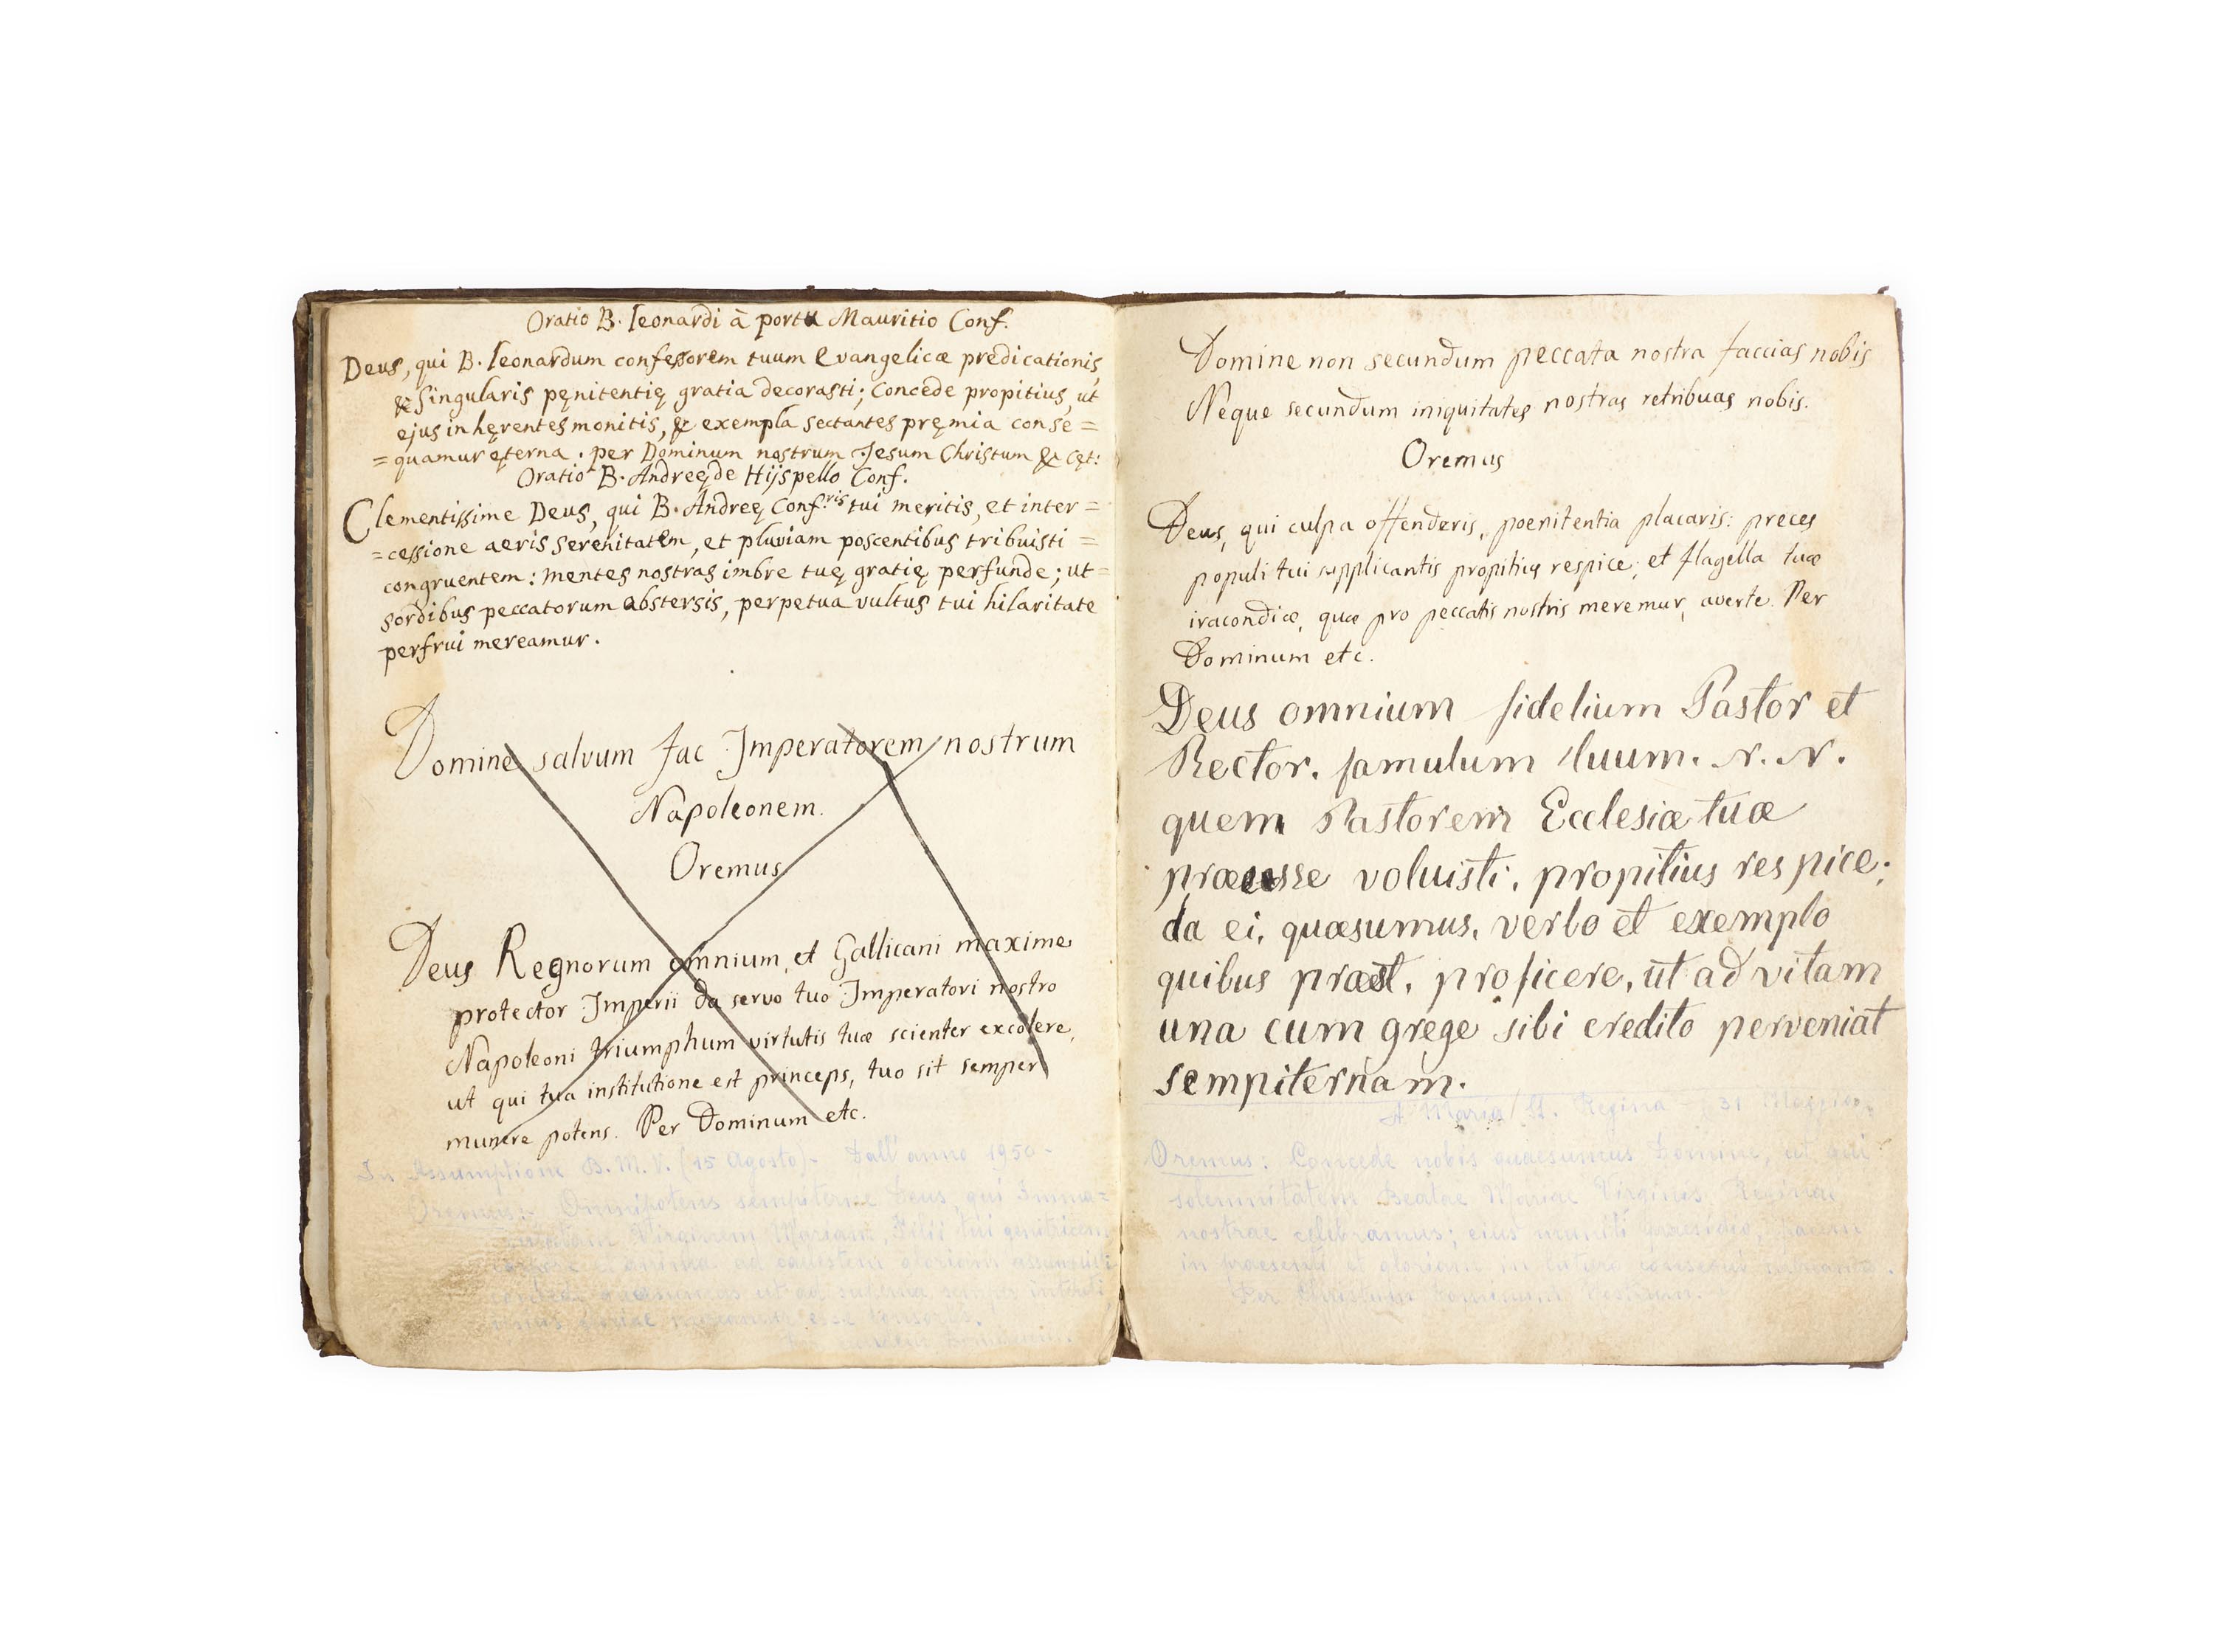 Oratio B. Leonardi à portu Mauritio Conf.
Deus, qui B. Leonardum confessorem tuum Evangelicæ predicationis,
& singularis pęnitentię gratia decorasti; Concede propitius, ut
ejus inhęrentes monitis, & exempla sectantes pręmia conse=
=quamur ęterna. per Dominum nostrum Jesum Christum & cęt:
Oratio B. Andreę de Hijspello Conf.
Clementissime Deus, qui B. Andreę Conf.ris tui meritis, et inter=
=cessione aeris serenitatem, et pluviam poscentibus tribuisti=
congruentem: mentes nostras imbre tuę gratię perfunde; ut=
sordibus peccatorum abstersis, perpetua vultus tui hilaritate
perfrui mereamur.
Domine salvum fac Imperatorem nostrum
Napoleonem.
Oremus
Deus Regnorum omnium, et Gallicani maxime
protector Imperii da servo tuo Imperatori nostro
Napoleoni triumphum virtutis tuæ scienter excolere,
ut qui tua institutione est princeps, tuo sit semper
munere potens. Per Dominum etc.
In Assumptione B. M. V. (15 Agosto) - Dall'anno 1950 -
Oremus: - Omnipotens sempiterne Deus, qui Imma=
Virginem Mariam, Filii tui genitricem
corpore et anima ad coelestem gloriam assumpsisti
concede quaesumus ut ad superna semper intenti
ipsius gloriae mereamur esse consortes.
Per eumdem Dominum.
Domine non secundum peccata nostra faccias nobis
Neque secundum iniquitates nostras retribuas nobis.
Oremus
Deus, qui culpa offenderis, poenitentia placaris: preces
populi tui supplicantis propitius respice; et flagella tuæ
iracondiæ, quæ pro peccatis nostris meremur, averte. Per
Dominum etc.
Deus omnium fidelium Pastor et
Rector, famulum tuum. N. N.
quem Pastorem Ecclesiæ tuæ
præesse voluisti, propitius respice;
da ei, quæsumus, verbo et exemplo
quibus præest, proficere, ut ad vitam
una cum grege sibi credito perveniat
sempiternam.
Maria Regina - 31 Maggio.
Oremus: Concede nobis quaesumus Domine, ut qui
solemnitatem Beatae Mariae Virginis Reginae
nostrae celebramus; eius muniti praesidio, pacem
in praesenti et gloriam in futuro consequi mereamur.
Per Christum Dominum Nostrum.